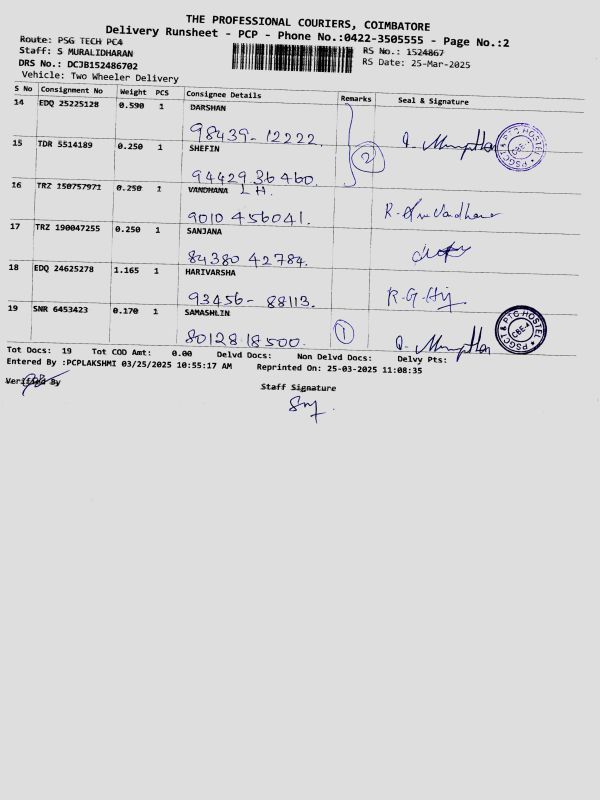 THE PROFESSIONAL COURIERS, COIMBATORE
Delivery Runsheet - PCP - Phone No.:0422-3505555 - Page No.:2
Route: PSG TECH PC4
RS No.: 1524867
Staff: S MURALIDHARAN
RS Date: 25-Mar-2025
DRS No.: DCJB152486702
Vehicle: Two Wheeler Delivery
S No Consignment No Weight PCS Consignee Details Remarks Seal & Signature
14 EDQ 25225128 0.590 1 DARSHAN
98439-12222.
15 TDR 5514189 0.250 1 SHEFIN
2
94429 36460.
16 TRZ 150757971 0.250 1 VANDHANA L H.
9010 456041.
17 TRZ 190047255 0.250 1 SANJANA
84380 42784.
18 EDQ 24625278 1.165 1 HARIVARSHA
93456- 88113.
19 SNR 6453423 0.170 1 SAMASHLIN
80128 18500. 1
PSGCT & PTC HOSTEL
CBE-4
PSGCT & PTC HOSTEL
CBE-4
Tot Docs: 19 Tot COD Amt: 0.00 Delvd Docs: Non Delvd Docs: Delvy Pts:
Entered By :PCPLAKSHMI 03/25/2025 10:55:17 AM Reprinted On: 25-03-2025 11:08:35
Verified By
Staff Signature